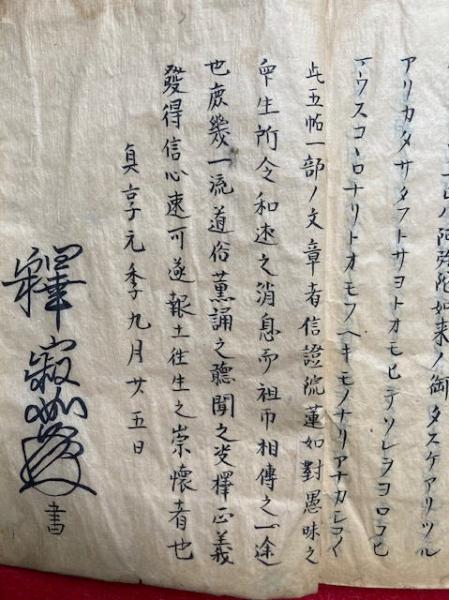 ハ阿弥陀如来ノ御タスケアリツル
アリカタサタフトサヨトオモヒテソレヲヨロコヒ
マウスコヽロナリトオモフヘキモノナリアナカシコ〳〵
此五帖一部ノ文章者信證院蓮如對愚昧之
衆生所令和述之消息而祖師相傳之一途
也庶幾一流道俗薫誦之聽聞之决擇正義
發得信心速可遂報土往生之崇懷者也
貞享元季九月廿五日
釋寂如
書